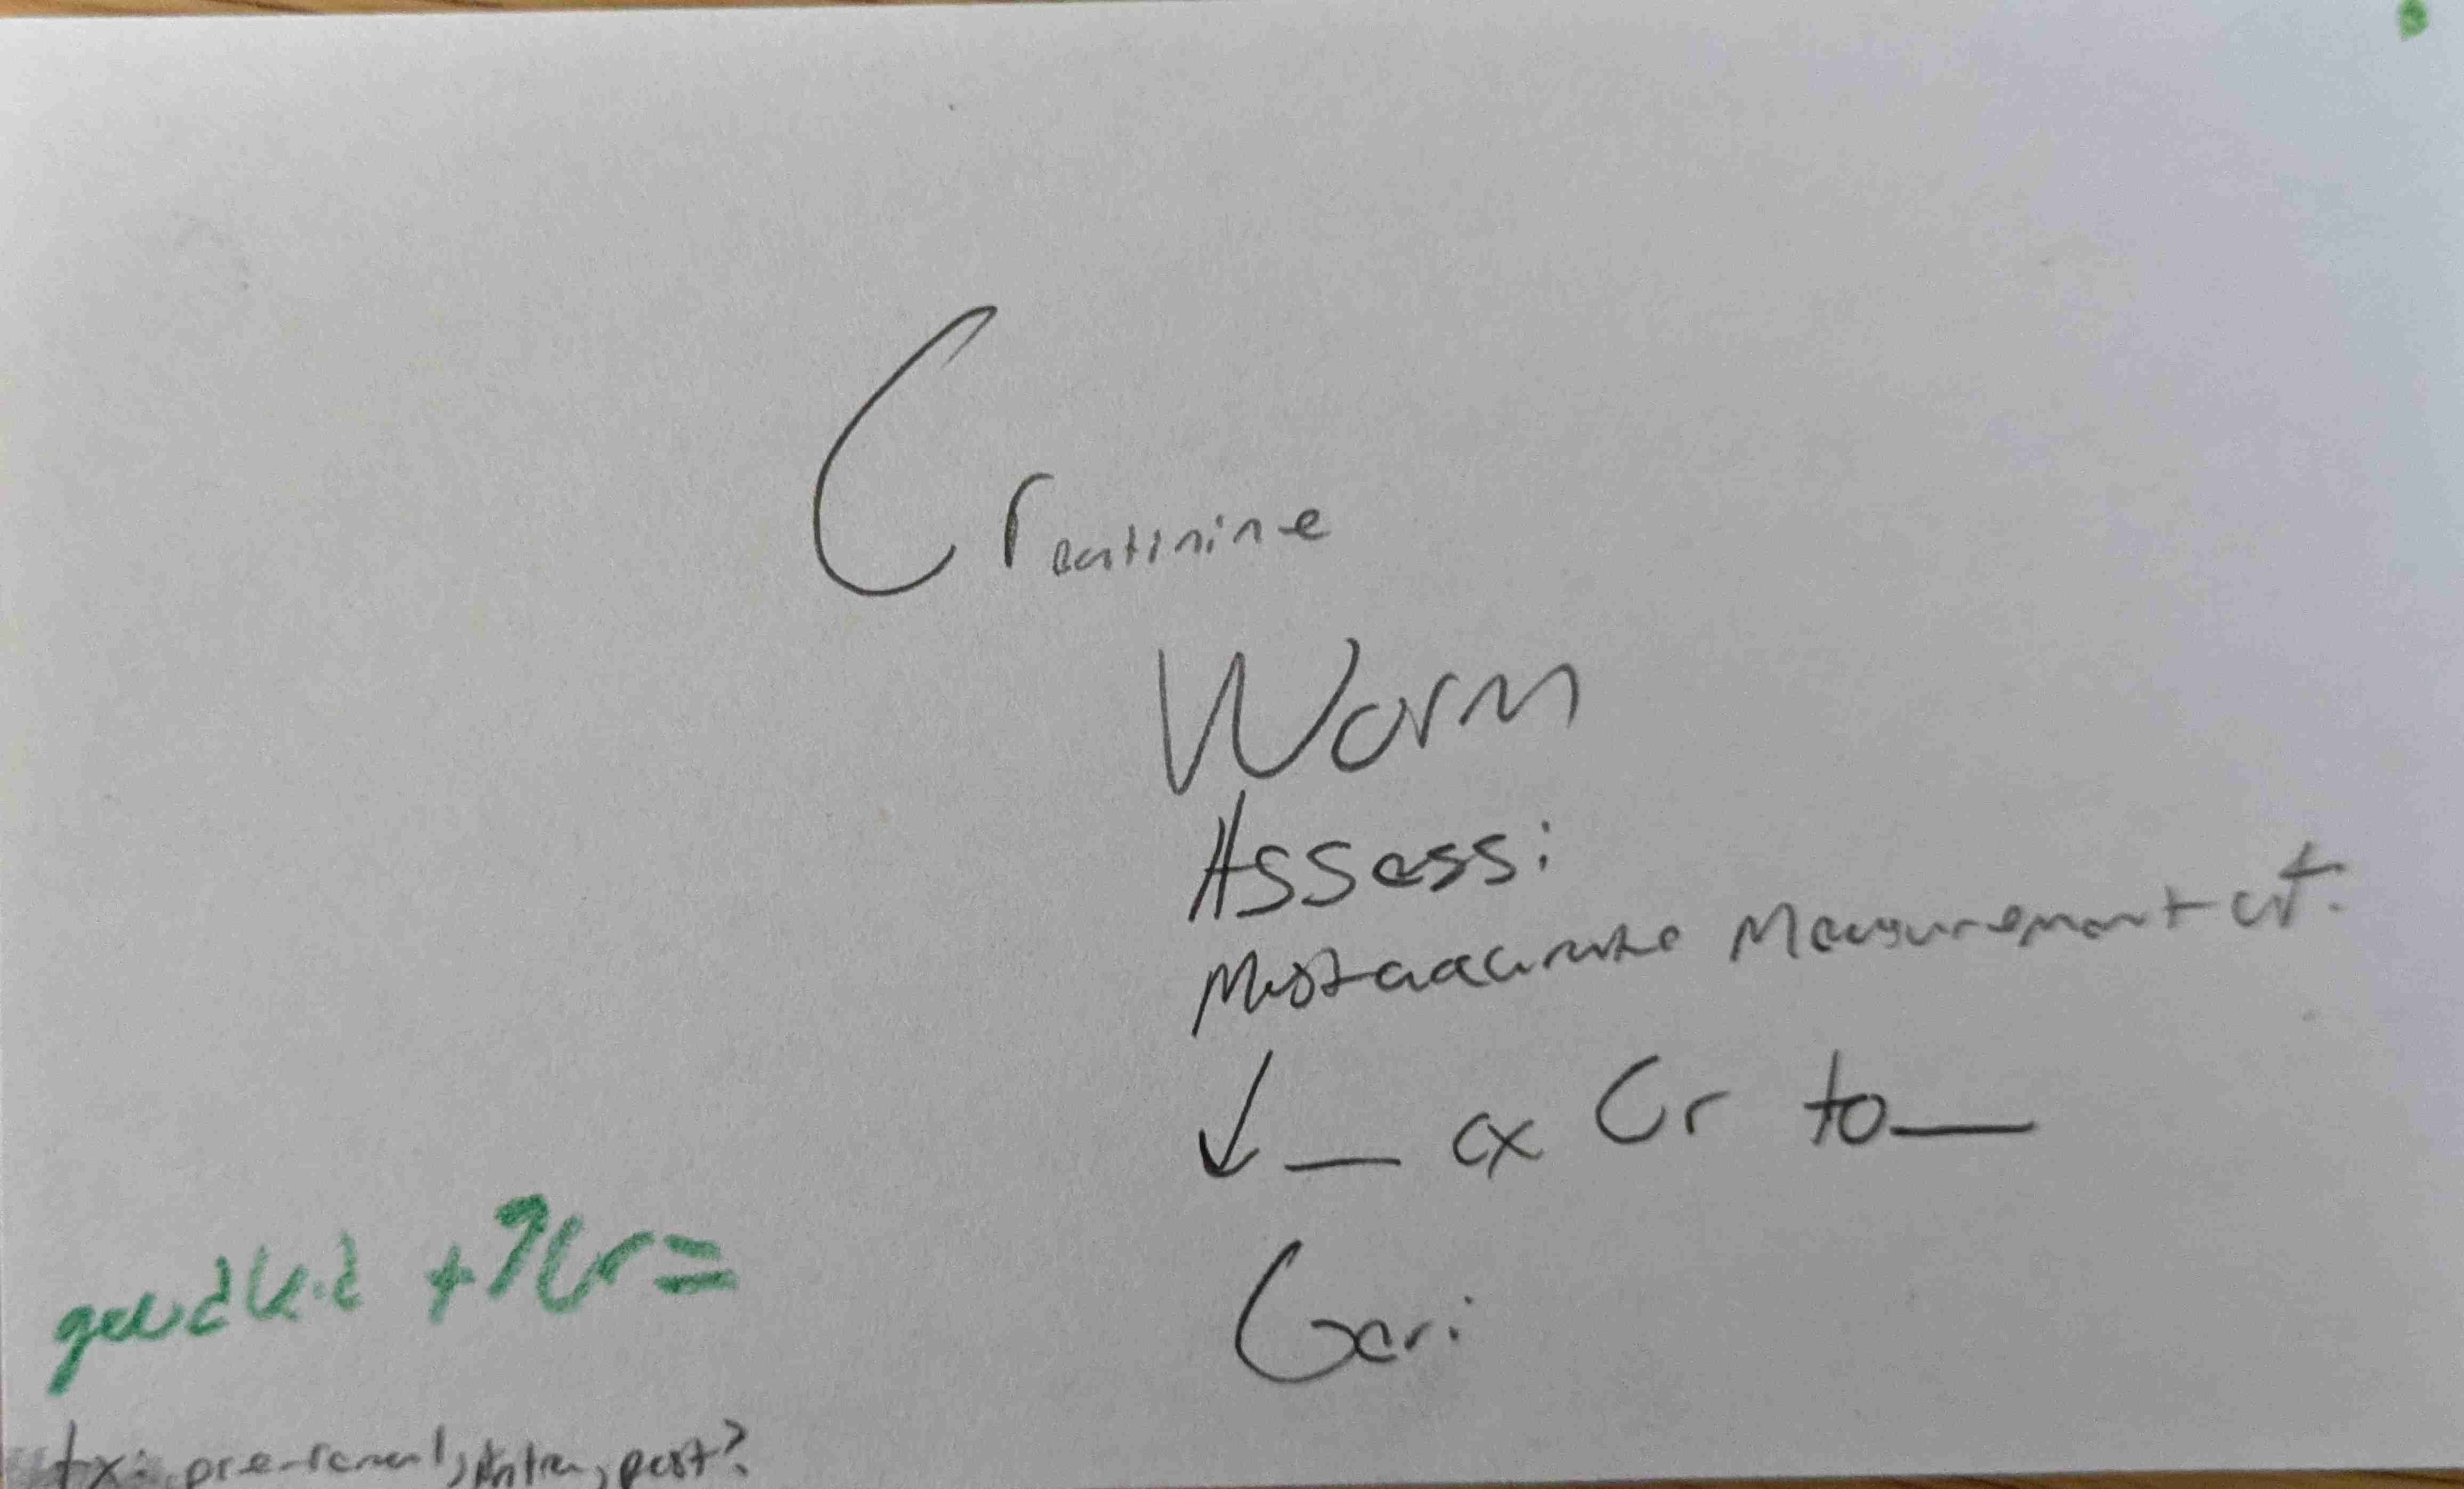 Creatinine
Worm
Assess:
Most accurate Measurement of:
↓ __ cx Cr to __
Geri:
+ ↑Cr =
tx: pre-renal, intra, post?